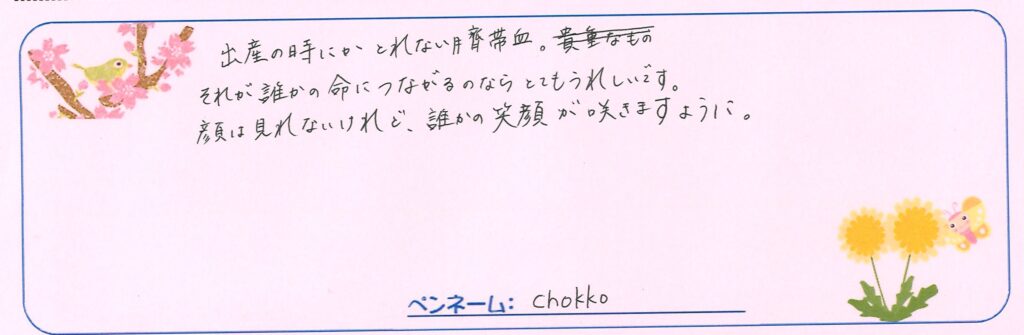 出産の時にかとれない臍帯血。貴重なもの
それが誰かの命につながるのならとてもうれしいです。
顔は見れないけれど、誰かの笑顔が咲きますように。
ペンネーム: chokko